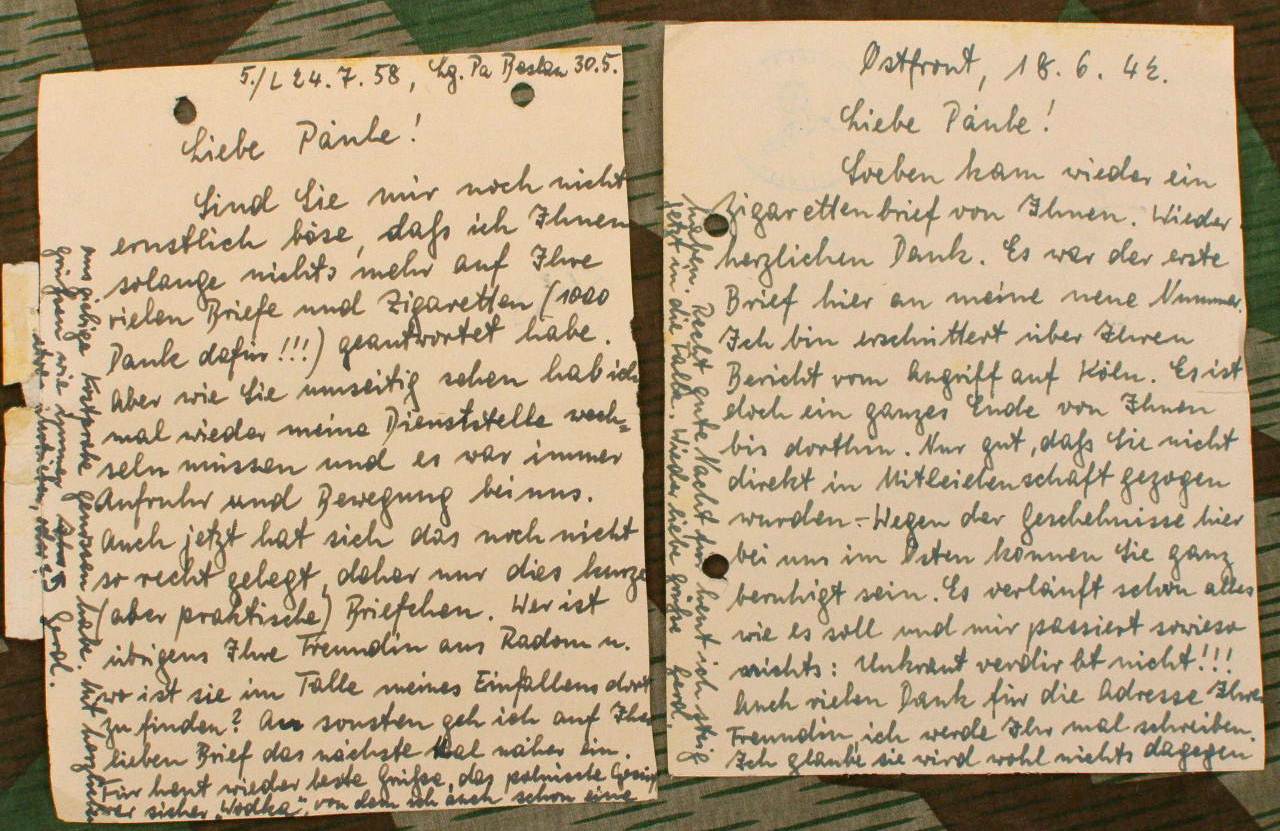 5./L 24. 7. 58, Lg. Pa Beslan 30.5.
Liebe Päule!
Sind Sie mir noch nicht
ernstlich böse, daß ich Ihnen
solange nichts mehr auf Ihre
vielen Briefe und Zigaretten (1000
Dank dafür!!!) geantwortet habe.
Aber wie Sie umseitig sehen hab ich
mal wieder meine Dienststelle wech-
seln müssen und es war immer
Aufruhr und Bewegung bei uns.
Auch jetzt hat sich das noch nicht
so recht gelegt, daher nur dies kurze
(aber praktische) Briefchen. Wer ist
übrigens Ihre Freundin aus Radom u.
wo ist sie im Falle meines Einfallens dort
zu finden? An sonsten geh ich auf Ihr
lieben Brief das nächste Mal näher ein.
Für heut wieder beste Grüße, das polnische
war sicher "Wodka", von dem ich auch schon eine
ausgiebige Kostprobe genossen habe. Mit herzlichen
Grüßen wie immer Gerd.
Ostfront, 18. 6. 42.
Liebe Päule!
Soeben kam wieder ein
Zigarettenbrief von Ihnen. Wieder
herzlichen Dank. Es war der erste
Brief hier an meine neue Nummer.
Ich bin erschüttert über Ihren
Bericht vom Angriff auf Köln. Es ist
doch ein ganzes Ende von Ihnen
bis dorthin. Nur gut, daß Sie nicht
direkt in Mitleidenschaft gezogen
wurden.- Wegen der Geschehnisse hier
bei uns im Osten können Sie ganz
beruhigt sein. Es verläuft schon alles
wie es soll und mir passiert sowieso
nichts: Unkraut verdirbt nicht!!!
Auch vielen Dank für die Adresse Ihre
Freundin, ich werde Ihr mal schreiben.
Ich glaube sie wird wohl nichts dagegen
haben. Recht gute Nacht für heut ich steig
jetzt in die Falle. Wieder liebe Grüße Gerd